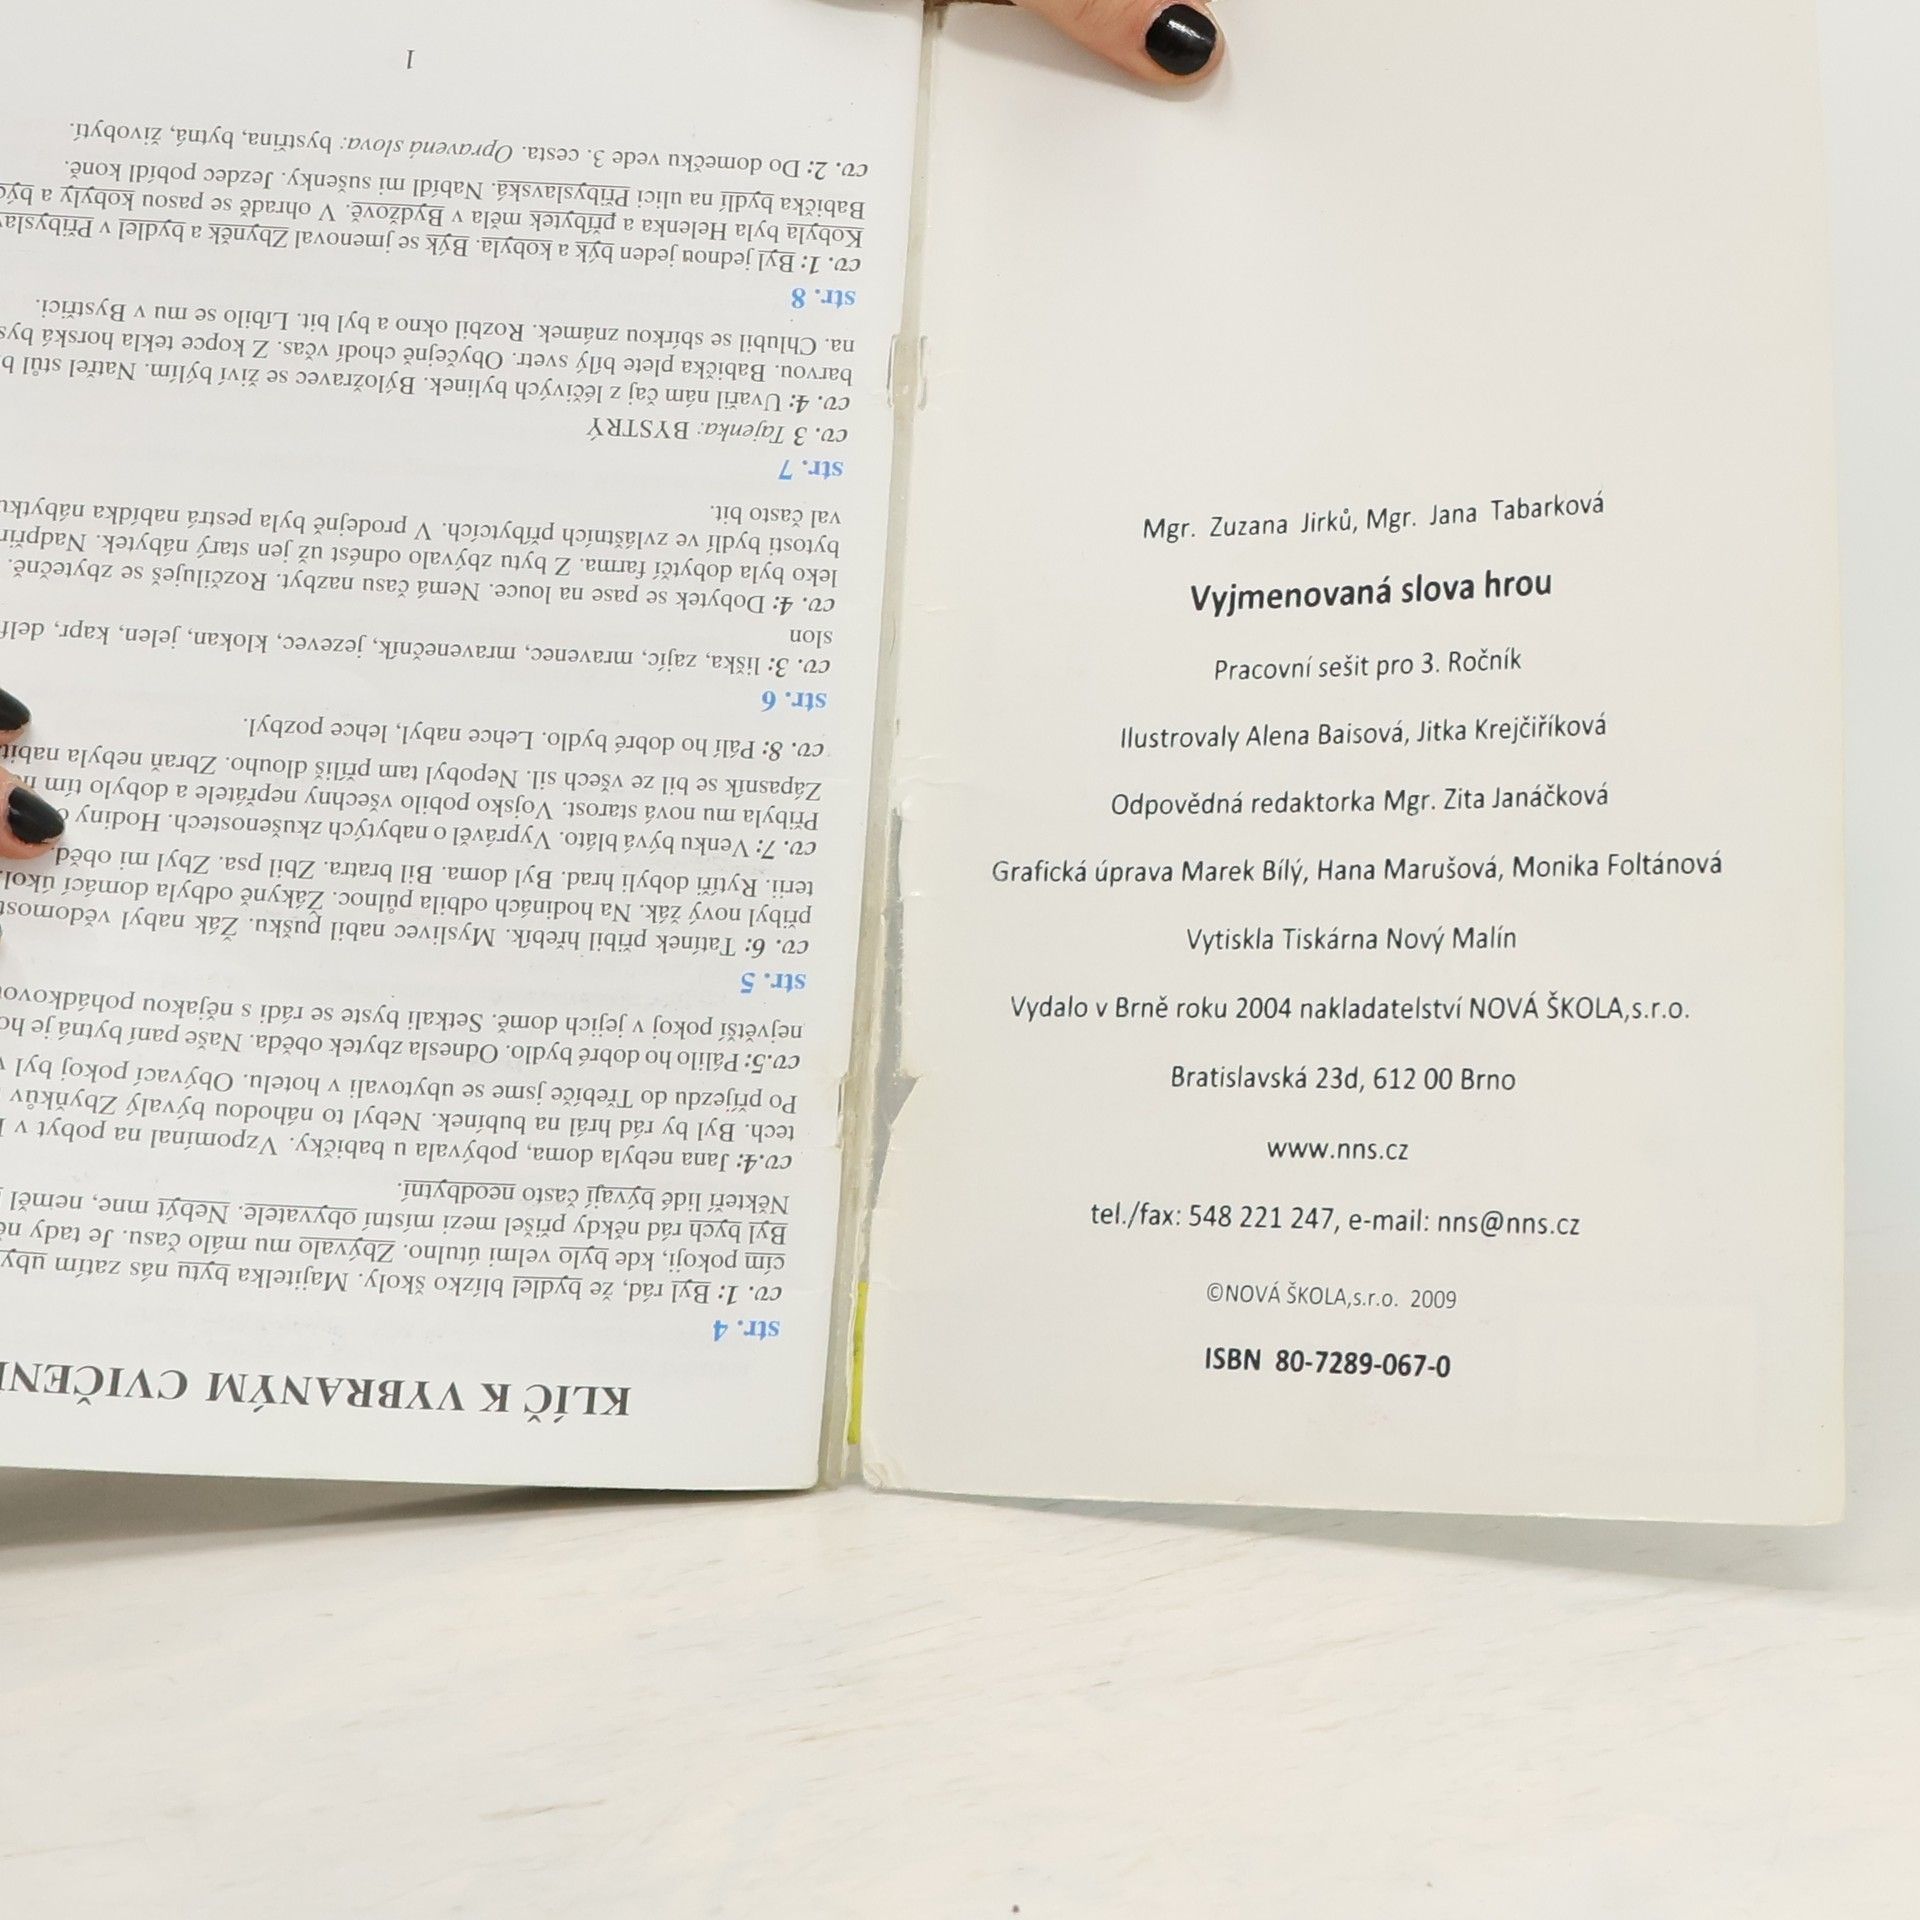 KLÍČ K VYBRANÝM
str. 4
cv. 1: Byl rád, že bydlel blízko školy. Majitelka bytu nás zatím
cím pokoji, kde bylo velmi útulno. Zbývalo mu málo času. Je tady
Byl bych rád někdy přišel mezi místní obyvatele. Nebýt mne, neměl
Někteří lidé bývají často neodbytní.
cv.4: Jana nebyla doma, pobývala u babičky. Vzpomínal na pobyt v
tech. Byl by rád hrál na bubínek. Nebyl to náhodou bývalý Zbyňkův
Po příjezdu do Třebíče jsme se ubytovali v hotelu. Obývací pokoj byl
cv.5: Pálilo ho dobré bydlo. Odnesla zbytek oběda. Naše paní bytná je
největší pokoj v jejich domě. Setkali byste se rádi s nějakou
str. 5
cv. 6: Tatínek přibil hřebík. Myslivec nabil pušku. Žák nabyl
přibyl nový žák. Na hodinách odbila půlnoc. Žákyně odbyla domácí úkol.
terii. Rytíři dobyli hrad. Byl doma. Bil bratra. Zbil psa. Zbyl mi oběd.
cv. 7: Venku bývá bláto. Vyprávěl o nabytých zkušenostech. Hodiny
Přibyla mu nová starost. Vojsko pobilo všechny nepřátele a dobylo tím
Zápasník se bil ze všech sil. Nepobyl tam příliš dlouho. Zbraň nebyla
cv. 8: Pálí ho dobré bydlo. Lehce nabyl, lehce pozbyl.
str. 6
cv. 3: liška, zajíc, mravenec, mravenečník, jezevec, klokan, jelen, kapr,
slon
cv. 4: Dobytek se pase na louce. Nemá času nazbyt. Rozčiluješ se zbytečně.
leko byla dobytčí farma. Z bytu zbývalo odnést už jen starý nábytek.
bytosti bydlí ve zvláštních příbytcích. V prodejně byla pestrá nabídka
val často bit.
str. 7
cv. 3 Tajenka: BYSTRÝ
cv. 4: Uvařil nám čaj z léčivých bylinek. Býložravec se živí býlím. Natřel stůl
barvou. Babička plete bílý svetr. Obyčejně chodí včas. Z kopce tekla horská
na. Chlubil se sbírkou známek. Rozbil okno a byl bit. Líbilo se mu v Bystřici.
str. 8
cv. 1: Byl jednou jeden býk a kobyla. Býk se jmenoval Zbyněk a bydlel v
Kobyla byla Helenka a příbytek měla v Bydžově. V ohradě se pasou kobyly a
Babička bydlí na ulici Přibyslavská. Nabídl mi sušenky. Jezdec pobídl koně.
cv. 2: Do domečku vede 3. cesta. Opravená slova: bystřina, bytná, živobytí.
1
Mgr. Zuzana Jirků, Mgr. Jana Tabarková
Vyjmenovaná slova hrou
Pracovní sešit pro 3. Ročník
Ilustrovaly Alena Baisová, Jitka Krejčiříková
Odpovědná redaktorka Mgr. Zita Janáčková
Grafická úprava Marek Bílý, Hana Marušová, Monika Foltánová
Vytiskla Tiskárna Nový Malín
Vydalo v Brně roku 2004 nakladatelství NOVÁ ŠKOLA,s.r.o.
Bratislavská 23d, 612 00 Brno
www.nns.cz
tel./fax: 548 221 247, e-mail: nns@nns.cz
©NOVÁ ŠKOLA,s.r.o. 2009
ISBN 80-7289-067-0